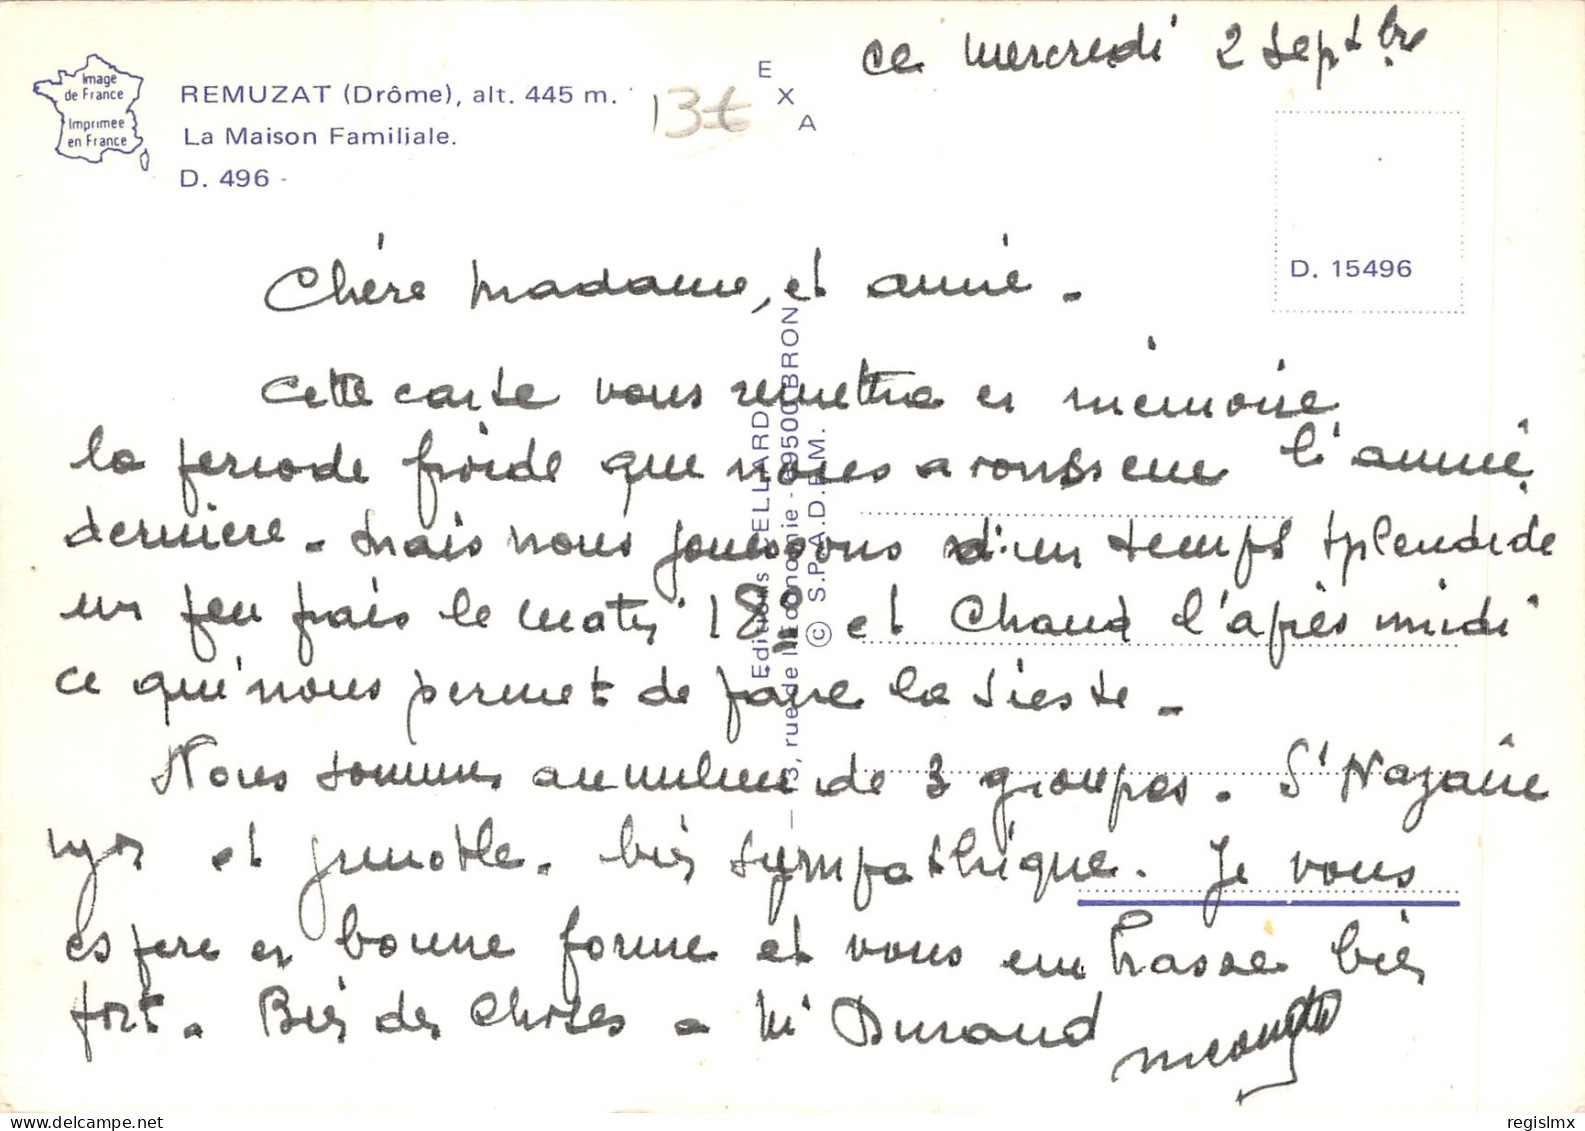 ce mercredi 2 septbre
Image
de France
Imprimée
en France
REMUZAT (Drôme), alt. 445 m.
La Maison Familiale.
D. 496 -
13t
E
X
A
D. 15496
Chère Madame, et Annie.
Cette carte vous remettra en mémoire
la periode froide que nous avons eue l'année
dernière. Mais nous jouissons d'un temps splendide
un peu frais le matin 18° et chaud l'après midi
ce qui nous permet de faire la sieste.
Nous sommes au nombre de 3 groupes. St Nazaire
et Grenoble. bien sympathique. Je vous
espere en bonne forme et vous embrasse bien
fort. Bien des choses - Durand
Editions CELLARD
- 3, rue de l'Economie - 69500 BRON
© S.P.A.D.E.M.
regislmx